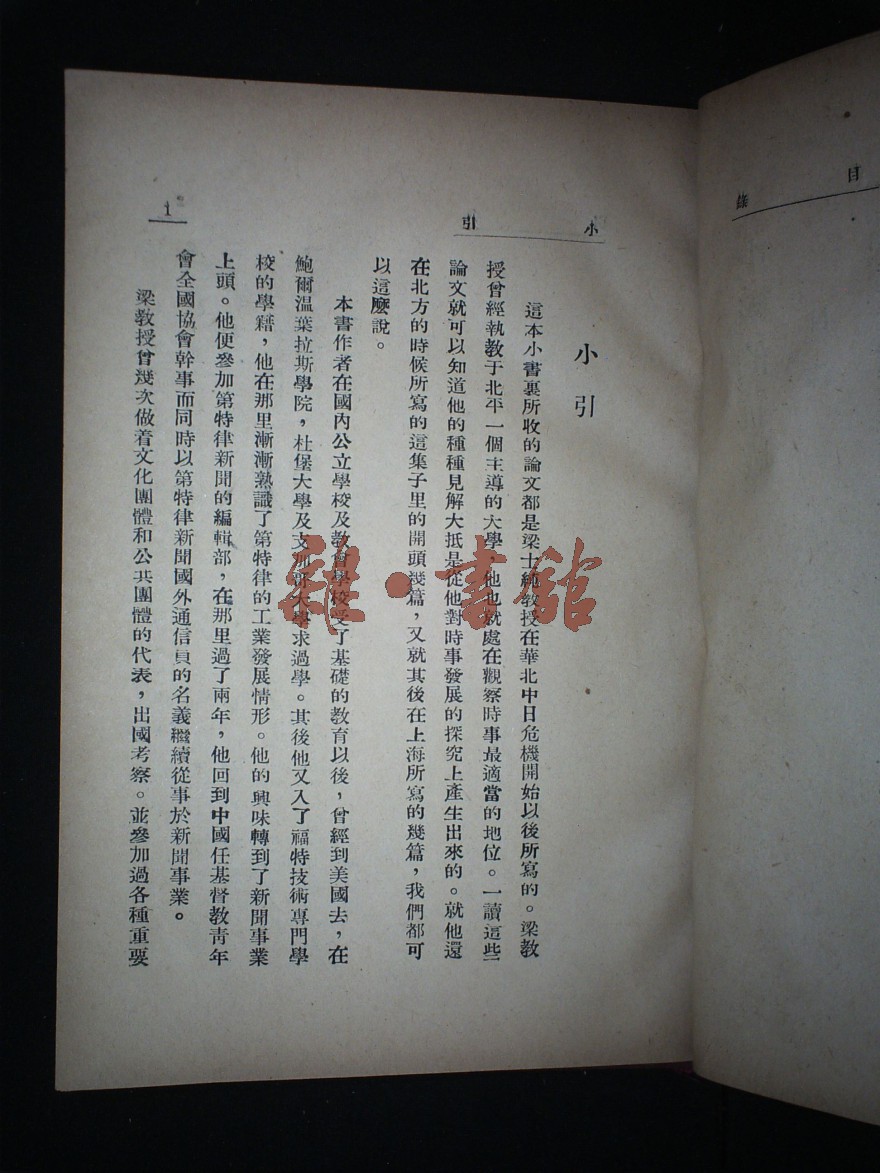 目 錄
小 引
小引
這本小書裏所收的論文都是梁士純教授在華北中日危機開始以後所寫的。梁教
授曾經執教于北平一個主導的大學，他也就處在觀察時事最適當的地位。一讀這些
論文就可以知道他的種種見解大抵是從他對時事發展的探究上產生出來的。就他還
在北方的時候所寫的這集子里的開頭幾篇，又就其後在上海所寫的幾篇，我們都可
以這麽說。
本書作者在國內公立學校及教會學校受了基礎的教育以後，曾經到美國去，在
鮑爾温葉拉斯學院，杜堡大學及支加哥大學求過學。其後他又入了福特技術專門學
校的學籍，他在那里漸漸熟識了第特律的工業發展情形。他的興味轉到了新聞事業
上頭。他便參加第特律新聞的編輯部，在那里過了兩年，他回到中國任基督教青年
會全國協會幹事而同時以第特律新聞國外通信員的名義繼續從事於新聞事業。
梁教授曾幾次做着文化團體和公共團體的代表，出國考察。並參加過各種重要
1
雜·書館